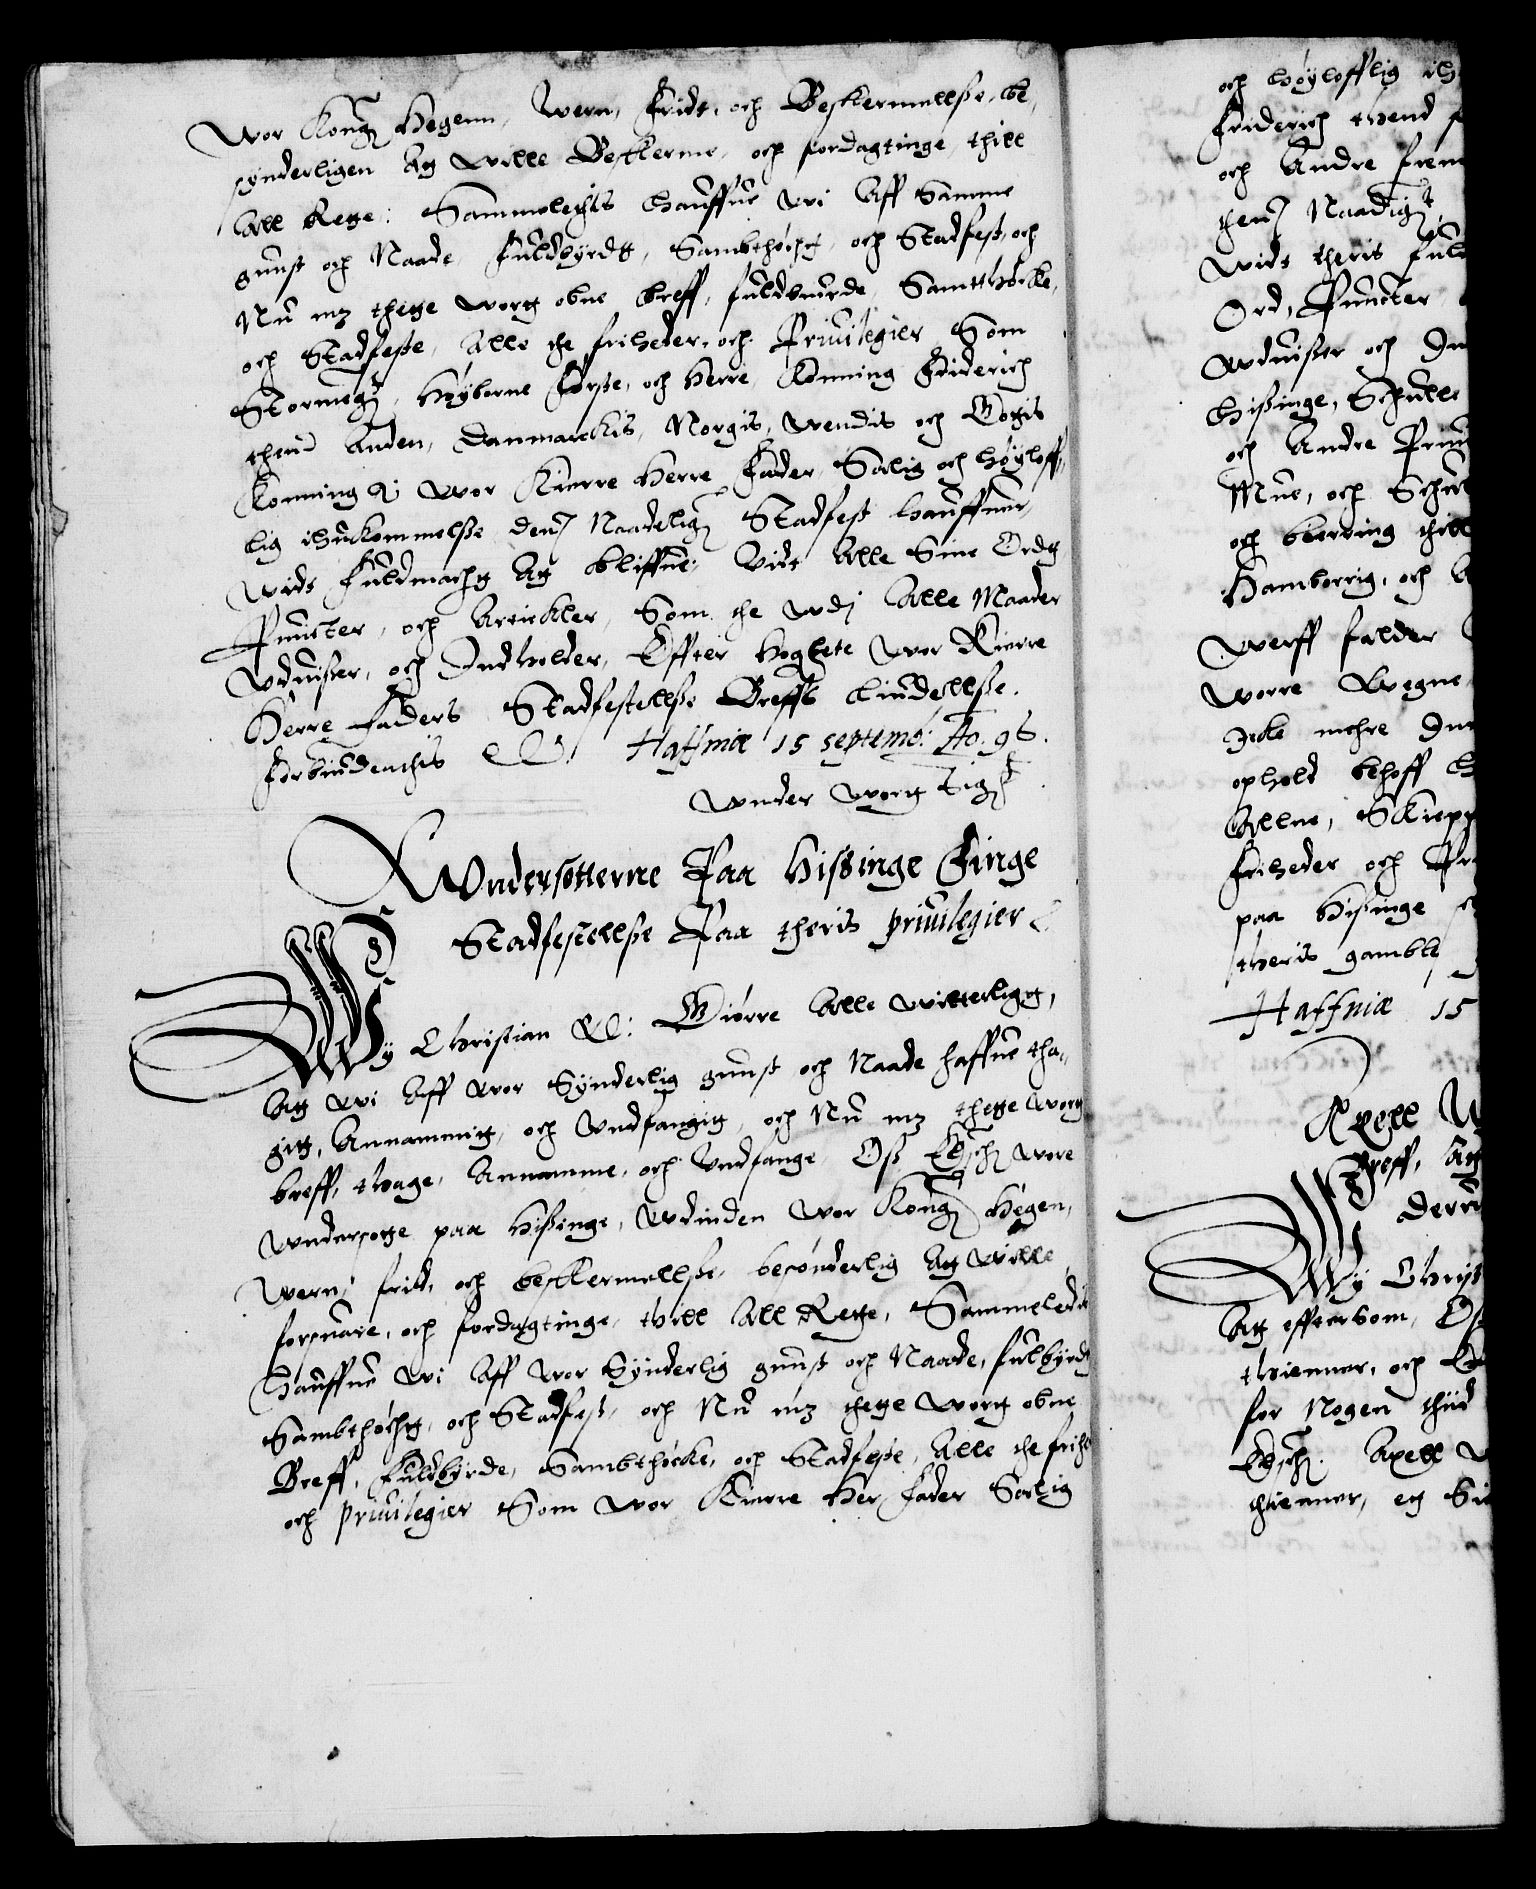 Wor Kong: Hegenn, Wern, Fridt, och Beskermellsse, be,
synderligen Att wille Beskerme, och fordagtinge, thill
All Rette: Sammeledis hauffue wi Aff Samme
gunst och Naade, Fuldbyrdt, Sambthøcht, och Stadfest, och
Nu mz thette wort obne breff, fuldbiurde, Sambthøcke,
och Stadfeste, Alle the friheder, och Priuilegier Som
Stormegt:, Høyborne Første, och Herre, Konning Friderich
thend Anden, Danmarckis, Norgis, Wendis och Gottis
Konning &: Wor Kierre Herre Fader, Salig och høyloff,
lig ihukommelsse, denn Naadeligt Stadfest hauffuer,
widt Fuldmacht Att bliffue, Vidt Alle Sine Ordt
Puncter, och Artickler, Som the wdj Alle Maader
Vduisser, och Indholder, Effter Høgbete Wor Kierre
Herre Faders Stadfestellsse Breffs liudellsse.
Forbiudendis &: Haffniæ 15 septemb: Ao. 96.
Wnder Wort Sig:
Wndersotterne Paa Hissinge Finge
Stadfestellsse Paa theris priuilegier &
Wy Christian &: Giørre Alle witterligt,
Att wi Aff wor Synderlig gunst och Naade haffue tha,
git, Annammit, och Vndfangit, och Nu mz thette wort
breff, thage, Annamme, och Vndfange, Oss Elsche: wore
wndersotte paa Hissinge, Wdinden Wor Kong: Hegen,
Wern, frid, och beskermellsse, besønderlig Att wille
forsuare, och fordagtinge, thill All Rette, Sammeledis
hauffue wi Aff wor Synderlig gunst och Naade, fulbyrdt
Sambthøcht, och Stadfest, och Nu mz thette wort obne
Breff, Fuldbyrde, Sambthøcke, och Stadfeste, Alle the frihe
och priuilegier Som wor Kierre Her Fader Salig
och høylofflig ih
Friderich thend
och Andre frem
thenn Naadigt
Widt theris ful
Ord, Puncter
Vduisser och In
Hissinge, Schulle
och Andre Priu
Mue, och Schul
och biering thill
Hamborrig, och
Werff falder
Worre Wegne
Icke mehre In
ophold behoff
Allne, Skiepp
Friheder och Pr
paa Hissinge
theris gamble
Haffniæ 15
Axell
Breff, Att
derr
Wy Christ
Att efftersom, Os
thienner, och
for Nogen thiid
Elsche: Axell
thienner, et